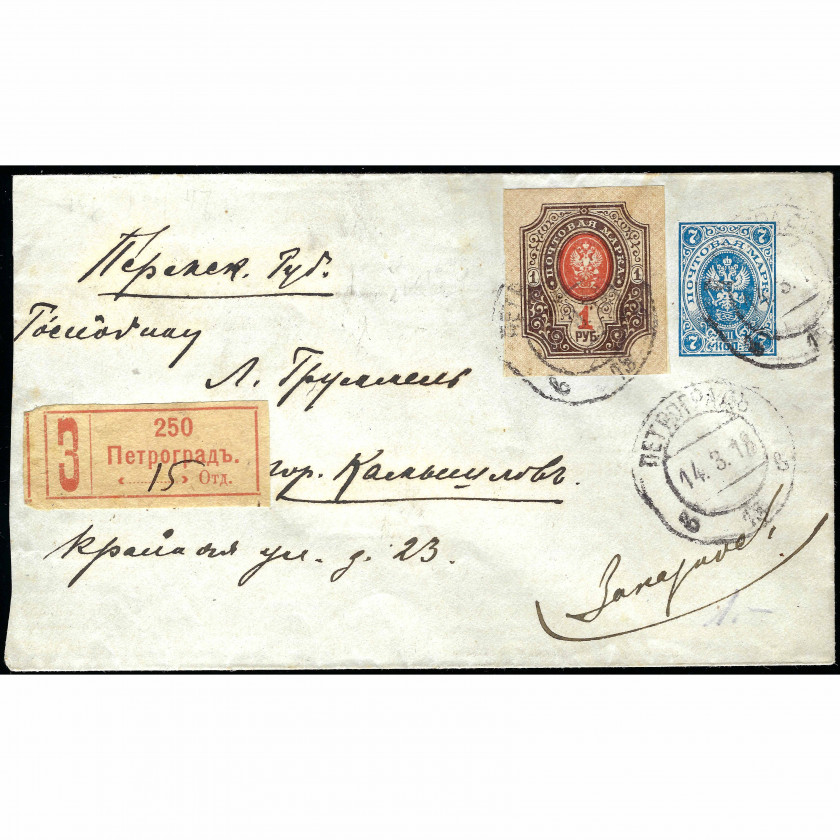 Пермск. Губ.
Господину
Л. Груммель
гор. Камышловъ.
Крайняя ул. д. 23.
Заказное
З
250
Петроградъ.
15 Отд.
1 1
ПОЧТОВАЯ МАРКА
1
РУБ
7 7
ПОЧТОВАЯ МАРКА
7 КОП. 7
ПЕТРОГРАДЪ
14.3.18
8
1.–